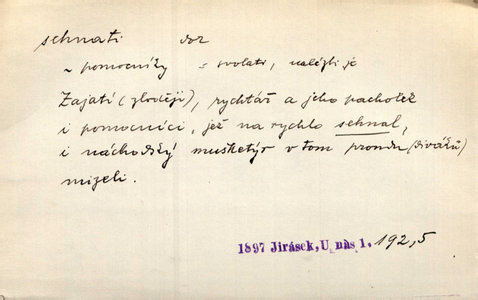 sehnati dok
~ pomocníky = svolati, nalézti je
Zajatí (zloději), rychtář a jeho pacholek
i pomocníci, jež na rychlo sehnal,
i náchodský mušketýr v tom proudu (diváků)
mizeli.
1897 Jirásek, U nás 1. 192,5